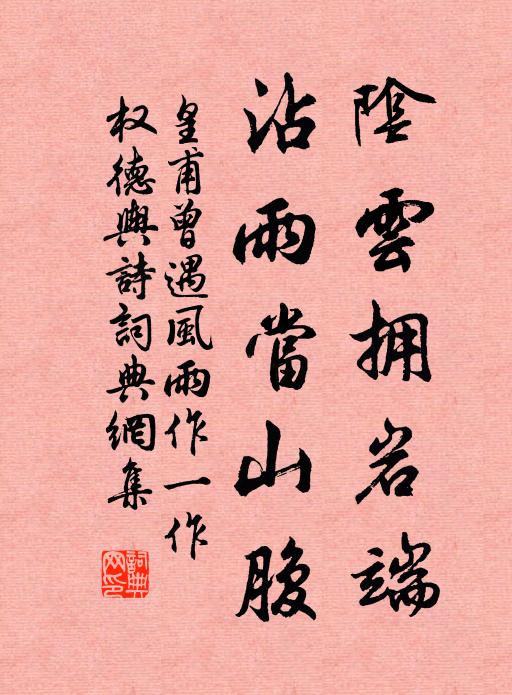 陰雲拥岩端
沾雨當山腹
皇甫曾遇風雨作一作
权德輿詩詞典網集
詞典
网印